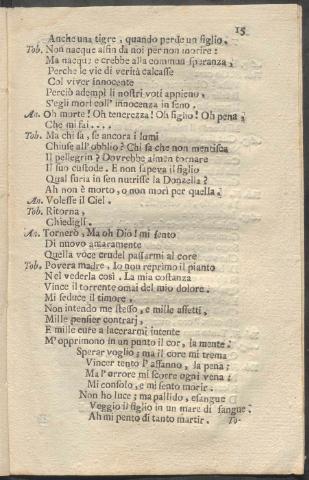 15
Anche una tigre, quando perde un figlio.
Tob. Non nacque alfin da noi per non morire:
Ma nacque e crebbe alla commun speranza,
Perche le vie di verità calcasse
Col viver innocente
Perciò adempì li nostri voti appieno,
S'egli morì coll' innocenza in seno.
An. Oh morte! Oh tenerezza! Oh figlio! Oh pena,
Che mi fai....
Tob. Ma chi sa, se ancora i lumi
Chiuse all' obblio? Chi sa che non mentisca
Il pellegrin? Dovrebbe almen tornare
Il suo custode. E non sapeva il figlio
Qual furia in sen nutrisse la Donzella?
Ah non è morto, o non morì per quella.
An. Volesse il Ciel.
Tob. Ritorna,
Chiedigli.
An. Tornerò, Ma oh Dio! mi sento
Di nuovo amaramente
Quella voce crudel passarmi al core
Tob. Povera madre, Io non reprimo il pianto
Nel vederla così. La mia costanza
Vince il torrente omai del mio dolore.
Mi seduce il timore,
Non intendo me stesso, e mille affetti,
Mille pensier contrarj,
E mille cure a lacerarmi intente
M'opprimono in un punto il cor, la mente.
Sperar voglio; ma il core mi trema
Vincer tento l'affanno, la pena;
Ma l'orrore mi scorre ogni vena;
Mi consolo, e mi sento morir.
Non ho luce; ma pallido, esangue
Veggio il figlio in un mare di sangue.
Ah mi pento di tanto martir. To-